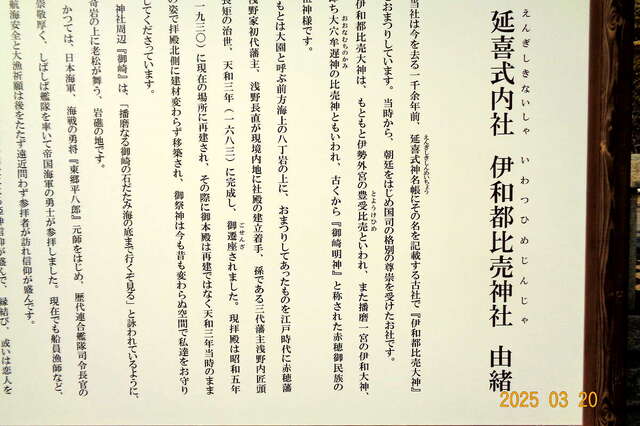 えんぎしきないしゃ いわつひめじんじゃ
延喜式内社 伊和都比売神社 由緒
当社は今を去る一千余年前、延喜式神名帳にその名を記載する古社で『伊和都比売大神』
えんぎしきじんめいちょう
おまつりしています。当時から、朝廷をはじめ国司の格別の尊崇を受けたお社です。
伊和都比売大神は、もともと伊勢外宮の豊受比売といわれ、また播磨一宮の伊和大神、
とようけひめ
ち大穴牟遅神の比売神ともいわれ、古くから『御崎明神』と称された赤穂御民族の
おおなむちのかみ
祖神様です。
もとは大園と呼ぶ前方海上の八丁岩の上に、おまつりしてあったものを江戸時代に赤穂藩
浅野家初代藩主、浅野長直が現境内地に社殿の建立着手、孫である三代藩主浅野内匠頭
長矩の治世、天和三年（一六八三）に完成し、御遷座されました。現拝殿は昭和五年
ごせんざ
一九三〇）に現在の場所に再建され、その際に御本殿は再建ではなく天和三年当時のまま
の姿で拝殿北側に建材変わらず移築され、御祭神は今も昔も変わらぬ空間で私達をお守り
してくださっています。
神社周辺『御崎』は、「播磨なる御崎の石だたみ海の底まで行くぞ見る」と詠われているように、
奇岩の上に老松が舞う、岩礁の地です。
かつては、日本海軍、海戦の勇将『東郷平八郎』元帥をはじめ、歴代連合艦隊司令長官の
崇敬厚く、しばしば艦隊を率いて帝国海軍の勇士が参拝しました。現在でも船員漁師など、
航海安全と大漁祈願は後をたたず遠近問わず参拝者が訪れ信仰が盛んです。
信仰が盛んで、縁結び、或いは恋人を
2025 03 20